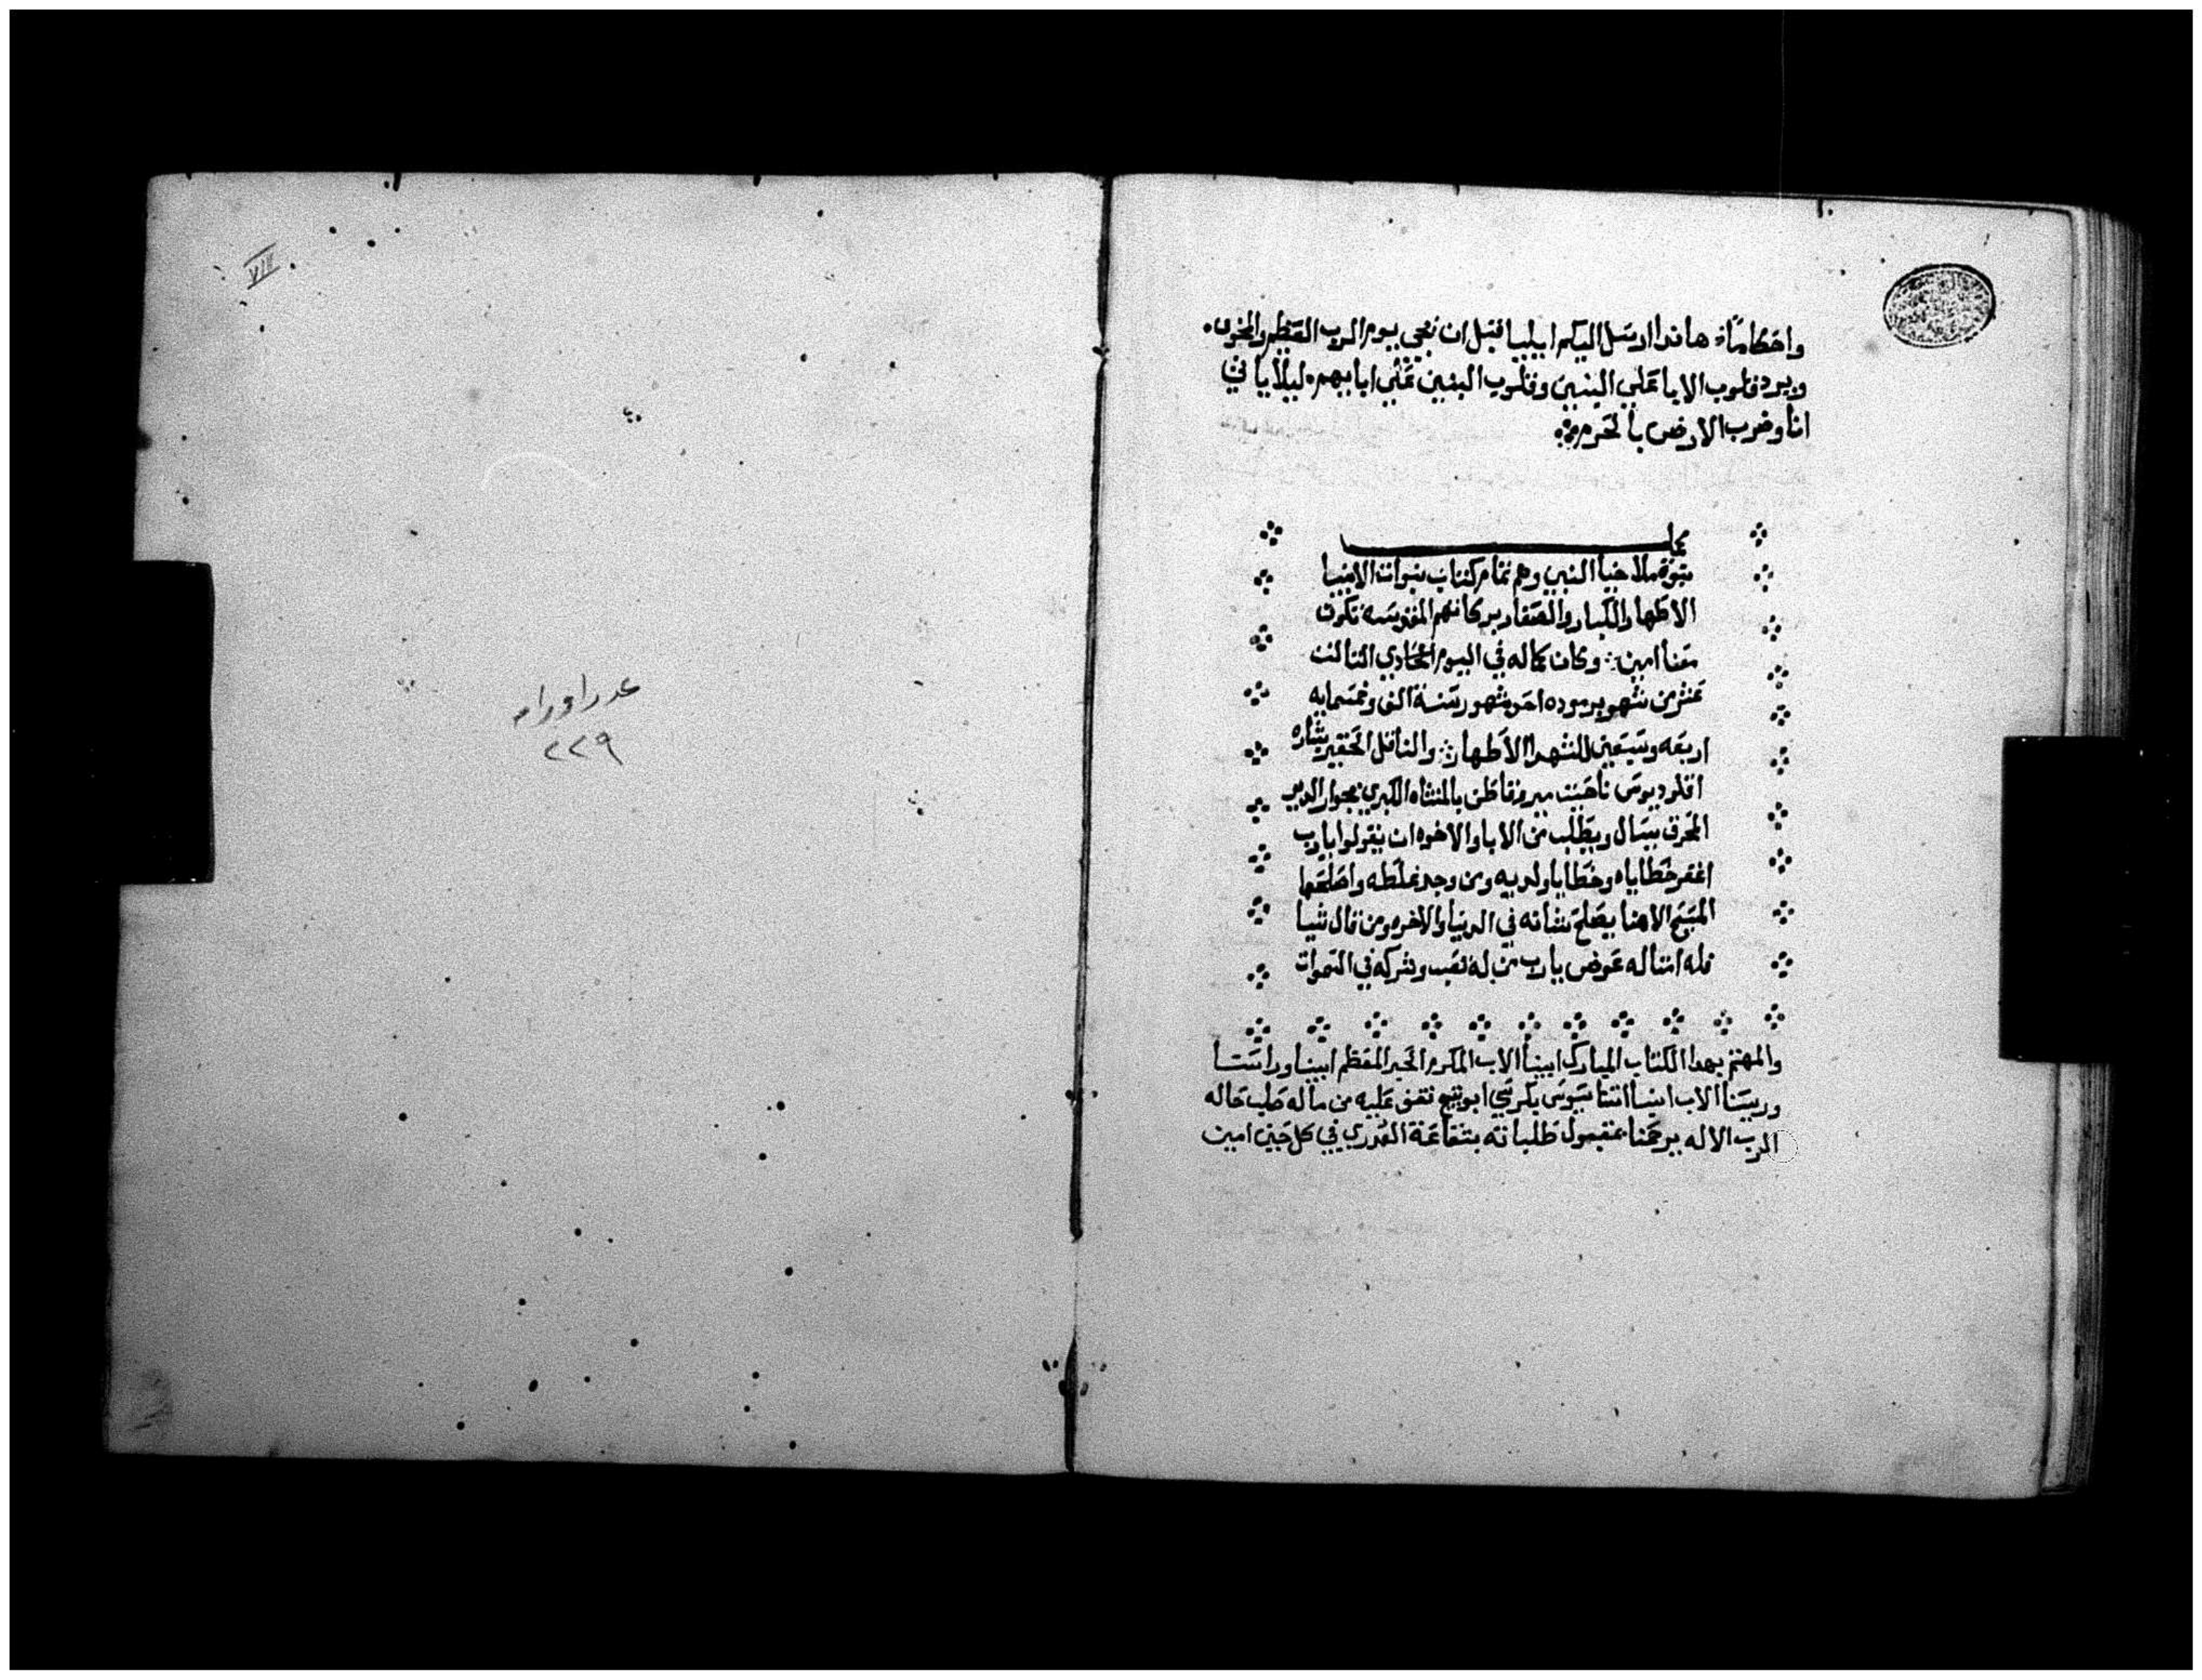 واحكاماً. هانذا ارسل اليكم ايليا قبل ان تجي يوم الرب العظيم والمخوف.
ويرد قلوب الابا على البنين وقلوب البنين على ابايهم. ليلا ياتي
انا وضرب الارض بالحرم
كملت
نبوة ملاخيا النبي وهم تمام كتاب نبوات الانبيا
الاطهار الكبار والصغار بركاتهم المقدسه تكون
معنا امين وكان كماله في اليوم الحادي الثالث
عشرين شهر برموده احد شهور سنة الف وخمسمايه
اربعه وتسعين للشهدا الاطهار والناقل الحقير بشاره
اقلوديوس ناحيت مير قاطن بالمنشاه الكبري بجوار الدير
المحرق يسال ويطلب من الابا والاخوه ان يقولوا يارب
اغفر خطاياه وخطايا ولديه ومن وجد غلطه واصلحها
المسيح الاهنا يصلح شانه في الدنيا والاخره ومن قال شيا
فله امثاله عوض يارب من له تعب وشركه في السموات
والمهتم بهدا الكتاب المبارك ابينا الاب المكرم الحبر المعظم ابينا وراسنا
وريسنا الاب انبا اتناسيوس بكرسي ابوتيج نفق عليه من ماله صلب حاله
الرب الاله يرحمنا بمقبول طلباته بشفاعة العدري في كل حين امين
VIII
عدد اوراقه
٢٢٩